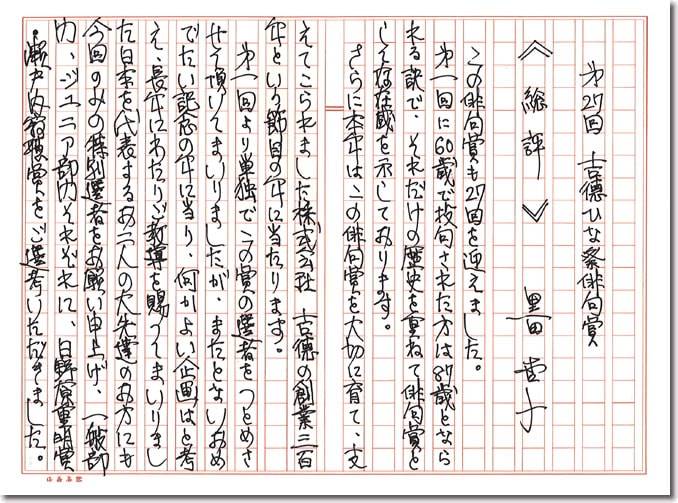 第27回 吉徳ひな祭俳句賞
《総評》 黒田杏子
この俳句賞も27回を迎えました。
第一回に60歳で投句された方は87歳となら
れる訳で、それだけの歴史を重ねて俳句賞と
して存在感を示しております。
さらに本年はこの俳句賞を大切に育て、支
えてこられました株式会社 吉徳の創業三百
年という節目の年に当たります。
第一回より単独でこの賞の選者をつとめさ
せて頂いてまいりましたが、またとないおめ
でたい記念の年に当り、何かよい企画はと考
え、長年にわたりご教導を賜ってまいりまし
た日本を代表するお二人の大先達のお方にも
今回のみの特別選者をお願い申上げ、一般部
門、ジュニア部門それぞれに、日野原重明賞
、瀬戸内寂聴賞をご選考いただきました。